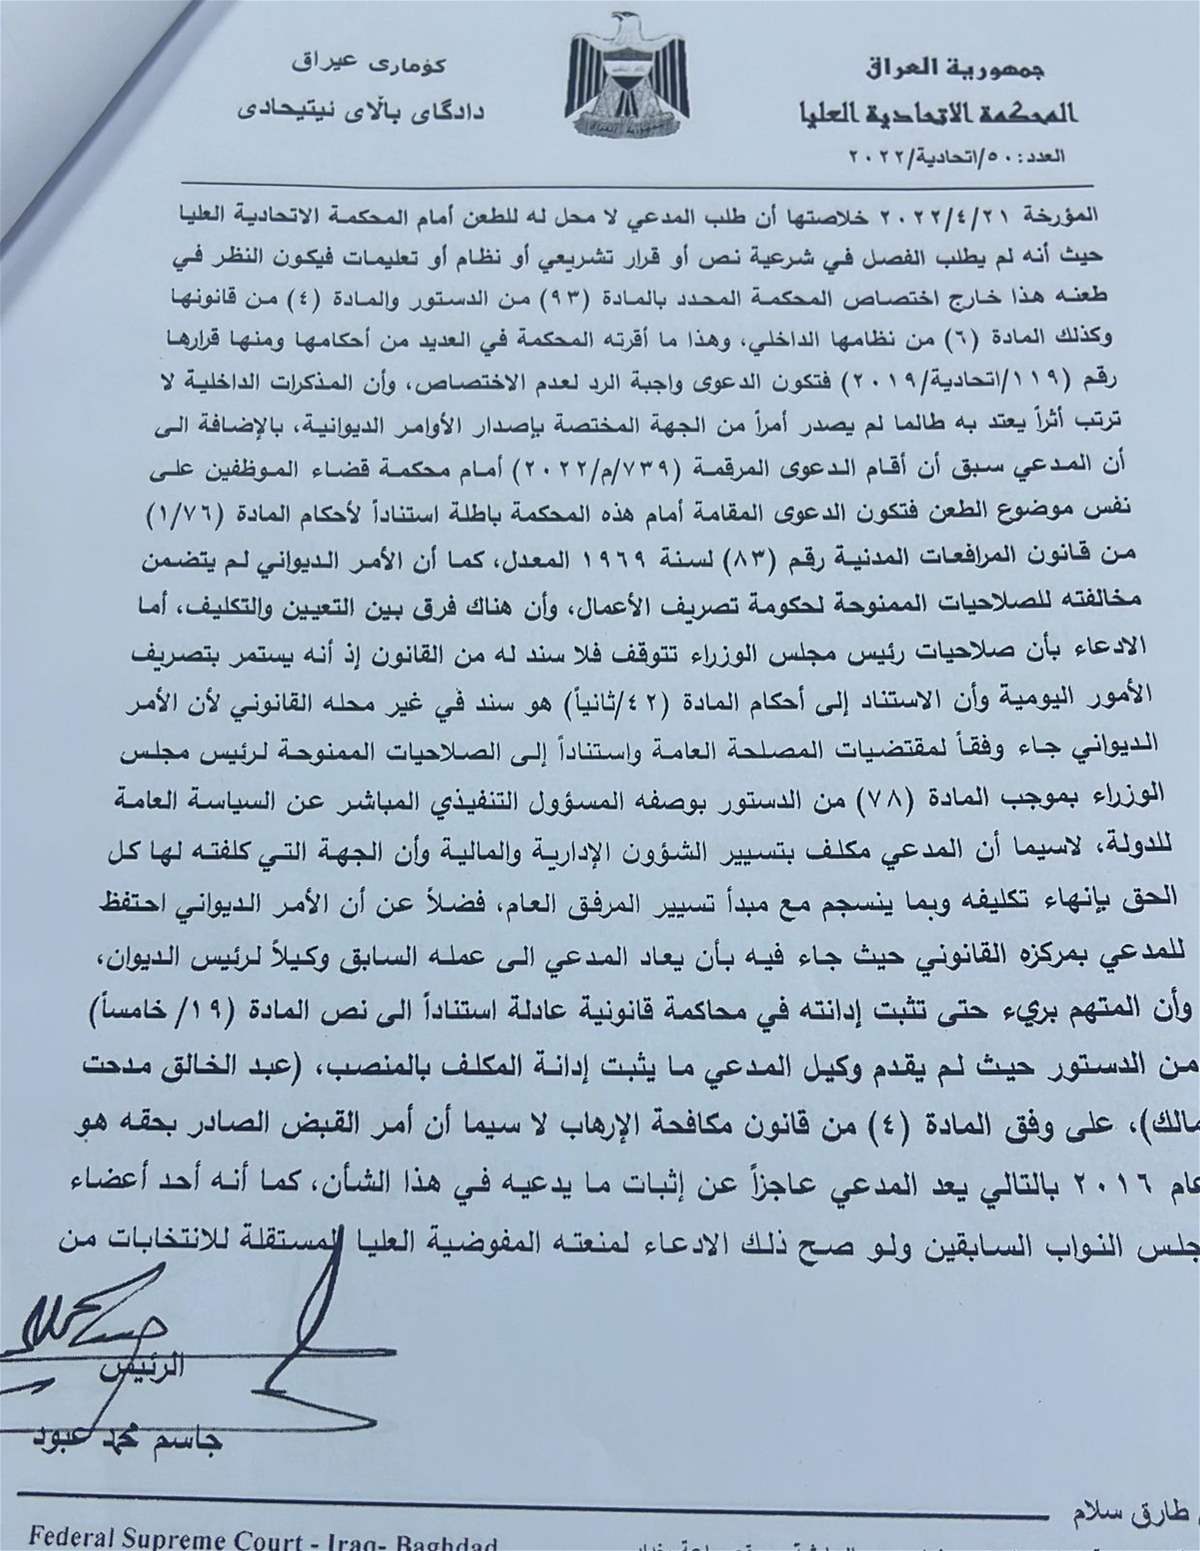 جمهورية العراق
المحكمة الاتحادية العليا
العدد: ٥٠/اتحادية/٢٠٢٢
كۆماری عیراق
دادگای باڵای ئیتیحادی
المؤرخة ٢٠٢٢/٤/٢١ خلاصتها أن طلب المدعي لا محل له للطعن أمام المحكمة الاتحادية العليا
حيث أنه لم يطلب الفصل في شرعية نص أو قرار تشريعي أو نظام أو تعليمات فيكون النظر في
طعنه هذا خارج اختصاص المحكمة المحدد بالمادة (٩٣) من الدستور والمادة (٤) من قانونها
وكذلك المادة (٦) من نظامها الداخلي، وهذا ما أقرته المحكمة في العديد من أحكامها ومنها قرارها
رقم (١١٩/اتحادية/٢٠١٩) فتكون الدعوى واجبة الرد لعدم الاختصاص، وأن المذكرات الداخلية لا
ترتب أثراً يعتد به طالما لم يصدر أمراً من الجهة المختصة بإصدار الأوامر الديوانية، بالإضافة الى
أن المدعي سبق أن أقام الدعوى المرقمة (٧٣٩/م/٢٠٢٢) أمام محكمة قضاء الموظفين على
نفس موضوع الطعن فتكون الدعوى المقامة أمام هذه المحكمة باطلة استناداً لأحكام المادة (١/٧٦)
من قانون المرافعات المدنية رقم (٨٣) لسنة ١٩٦٩ المعدل، كما أن الأمر الديواني لم يتضمن
مخالفته للصلاحيات الممنوحة لحكومة تصريف الأعمال، وأن هناك فرق بين التعيين والتكليف، أما
الادعاء بأن صلاحيات رئيس مجلس الوزراء تتوقف فلا سند له من القانون إذ أنه يستمر بتصريف
الأمور اليومية وأن الاستناد إلى أحكام المادة (٤٢/ثانياً) هو سند في غير محله القانوني لأن الأمر
الديواني جاء وفقاً لمقتضيات المصلحة العامة واستناداً إلى الصلاحيات الممنوحة لرئيس مجلس
الوزراء بموجب المادة (٧٨) من الدستور بوصفه المسؤول التنفيذي المباشر عن السياسة العامة
للدولة، لاسيما أن المدعي مكلف بتسيير الشؤون الإدارية والمالية وأن الجهة التي كلفته لها كل
الحق بإنهاء تكليفه وبما ينسجم مع مبدأ تسيير المرفق العام، فضلاً عن أن الأمر الديواني احتفظ
للمدعي بمركزه القانوني حيث جاء فيه بأن يعاد المدعي الى عمله السابق وكيلاً لرئيس الديوان،
وأن المتهم بريء حتى تثبت إدانته في محاكمة قانونية عادلة استناداً الى نص المادة (١٩/ خامساً)
من الدستور حيث لم يقدم وكيل المدعي ما يثبت إدانة المكلف بالمنصب، (عبد الخالق مدحت
مالك)، على وفق المادة (٤) من قانون مكافحة الإرهاب لا سيما أن أمر القبض الصادر بحقه هو
عام ٢٠١٦ بالتالي يعد المدعي عاجزاً عن إثبات ما يدعيه في هذا الشأن، كما أنه أحد أعضاء
جلس النواب السابقين ولو صح ذلك الادعاء لمنعته المفوضية العليا المستقلة للانتخابات من
الرئيس
جاسم محمد عبود
طارق سلام
Federal Supreme Court - Iraq- Baghdad